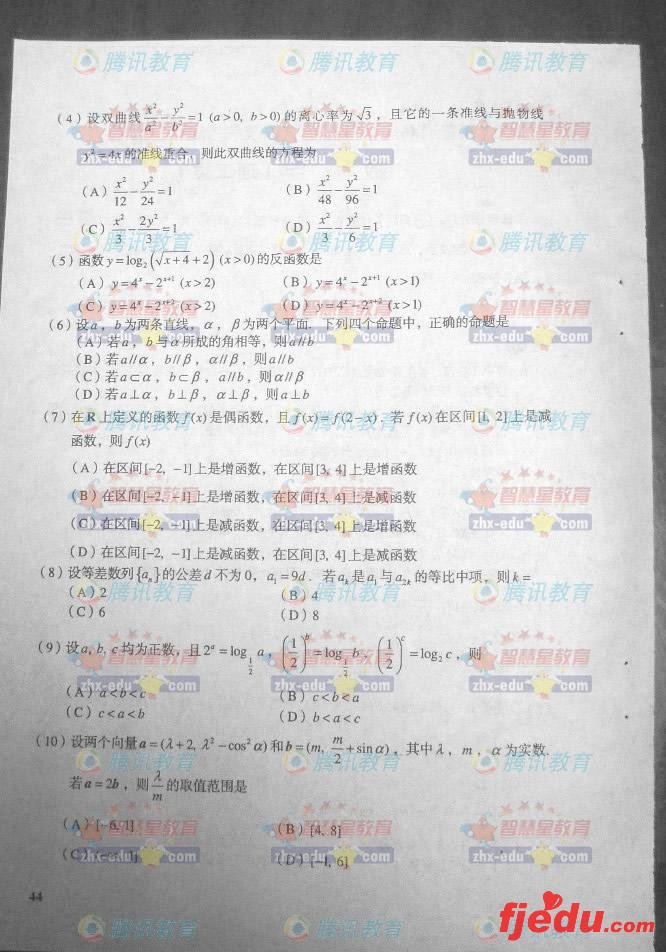 (4) 设双曲线 x²/a² - y²/b² =1 (a>0, b>0) 的离心率为 √3 ，且它的一条准线与抛物线
y²=4x 的准线重合，则此双曲线的方程为
(A) x²/12 - y²/24 =1 (B) x²/48 - y²/96 =1
(C) x²/3 - 2y²/3 =1 (D) x²/3 - y²/6 =1
(5) 函数 y=log₂(√x+4+2) (x>0) 的反函数是
(A) y=4ˣ-2ˣ⁺¹ (x>2) (B) y=4ˣ-2ˣ⁺¹ (x>1)
(C) y=4ˣ-2ˣ⁺² (x>2) (D) y=4ˣ-2ˣ⁺² (x>1)
(6) 设a，b为两条直线，α，β为两个平面．下列四个命题中，正确的命题是
(A) 若a，b与α所成的角相等，则a//b
(B) 若a//α，b//β，α//β，则a//b
(C) 若a⊂α，b⊂β，a//b，则α//β
(D) 若a⊥α，b⊥β，α⊥β，则a⊥b
(7) 在R上定义的函数 f(x) 是偶函数，且 f(x)=f(2-x)．若 f(x) 在区间[1, 2]上是减
函数，则 f(x)
(A) 在区间[-2, -1]上是增函数，在区间[3, 4]上是增函数
(B) 在区间[-2, -1]上是增函数，在区间[3, 4]上是减函数
(C) 在区间[-2, -1]上是减函数，在区间[3, 4]上是增函数
(D) 在区间[-2, -1]上是减函数，在区间[3, 4]上是减函数
(8) 设等差数列{aₙ}的公差d不为0，a₁=9d．若aₖ是a₁与a₂ₖ的等比中项，则k=
(A) 2 (B) 4
(C) 6 (D) 8
(9) 设a, b, c均为正数，且 2ᵃ=log_{1/2} a，(1/2)ᵇ=log_{1/2} b，(1/2)ᶜ=log₂ c．则
(A) a<b<c (B) c<b<a
(C) c<a<b (D) b<a<c
(10) 设两个向量 a=(λ+2, λ²-cos²α) 和 b=(m, m/2+sinα)，其中λ，m，α为实数．
若 a=2b，则 λ/m 的取值范围是
(A) [-6, 1] (B) [4, 8]
(D) [-1, 6]
44
腾讯教育
智慧星教育
zhx-edu.com
fjedu.com